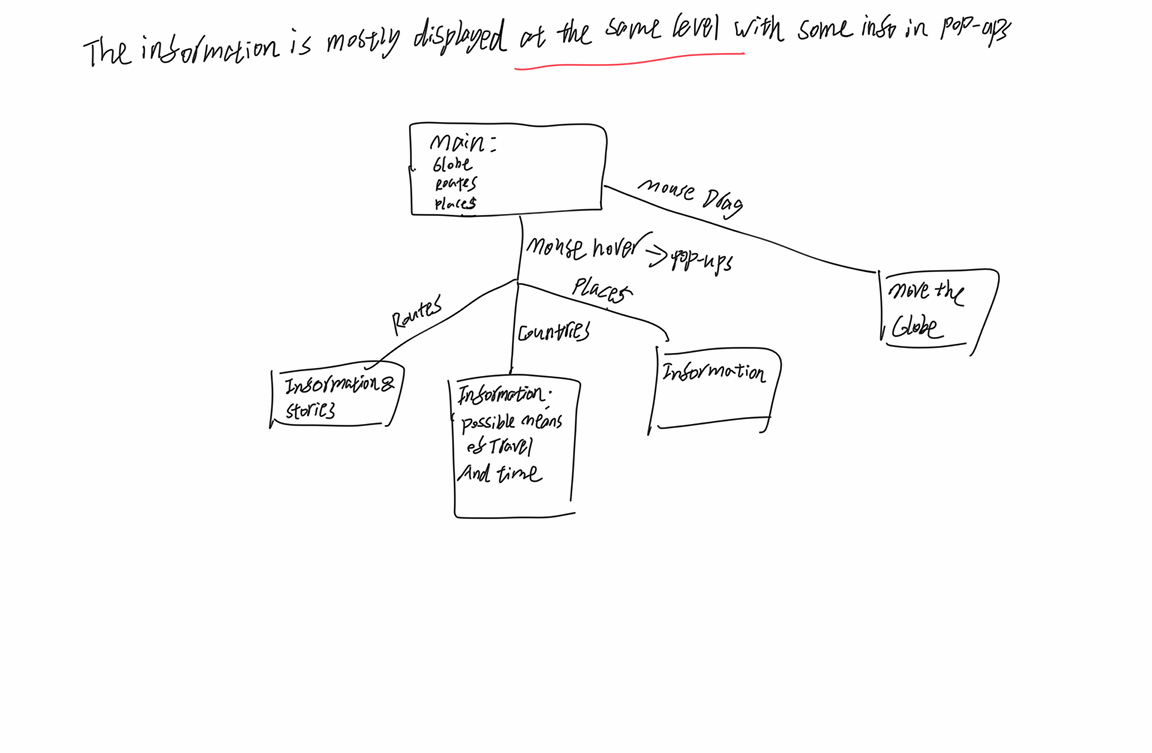 The information is mostly displayed at the same level with some info in pop-ups
Main:
Globe
Routes
Places
Mouse Drag
Mouse hover → pop-ups
Move the
Globe
Routes
Countries
Places
Information &
stories
Information:
possible means
of Travel
And time
Information